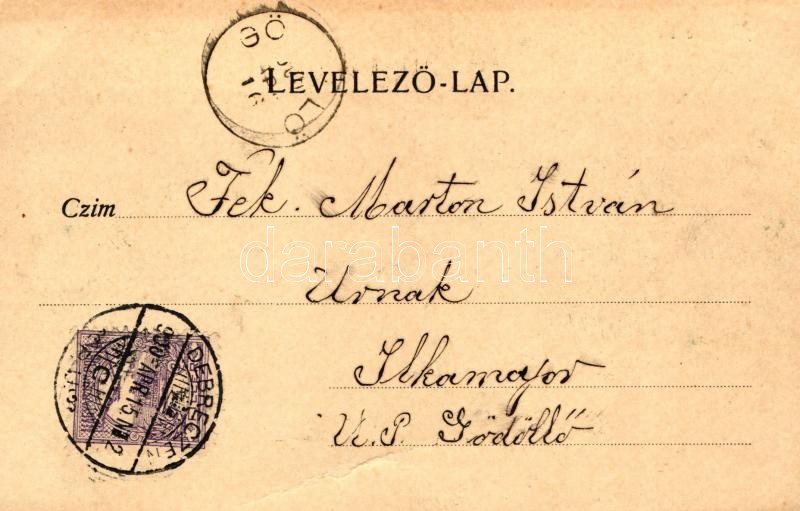 GÖ LŐ
16
LEVELEZŐ-LAP.
Czim Tek. Marton István
darabanth
Urnak
Ilkamajor
U.P. Gödöllő
DEBRECZEN
900 APR 15 N 2